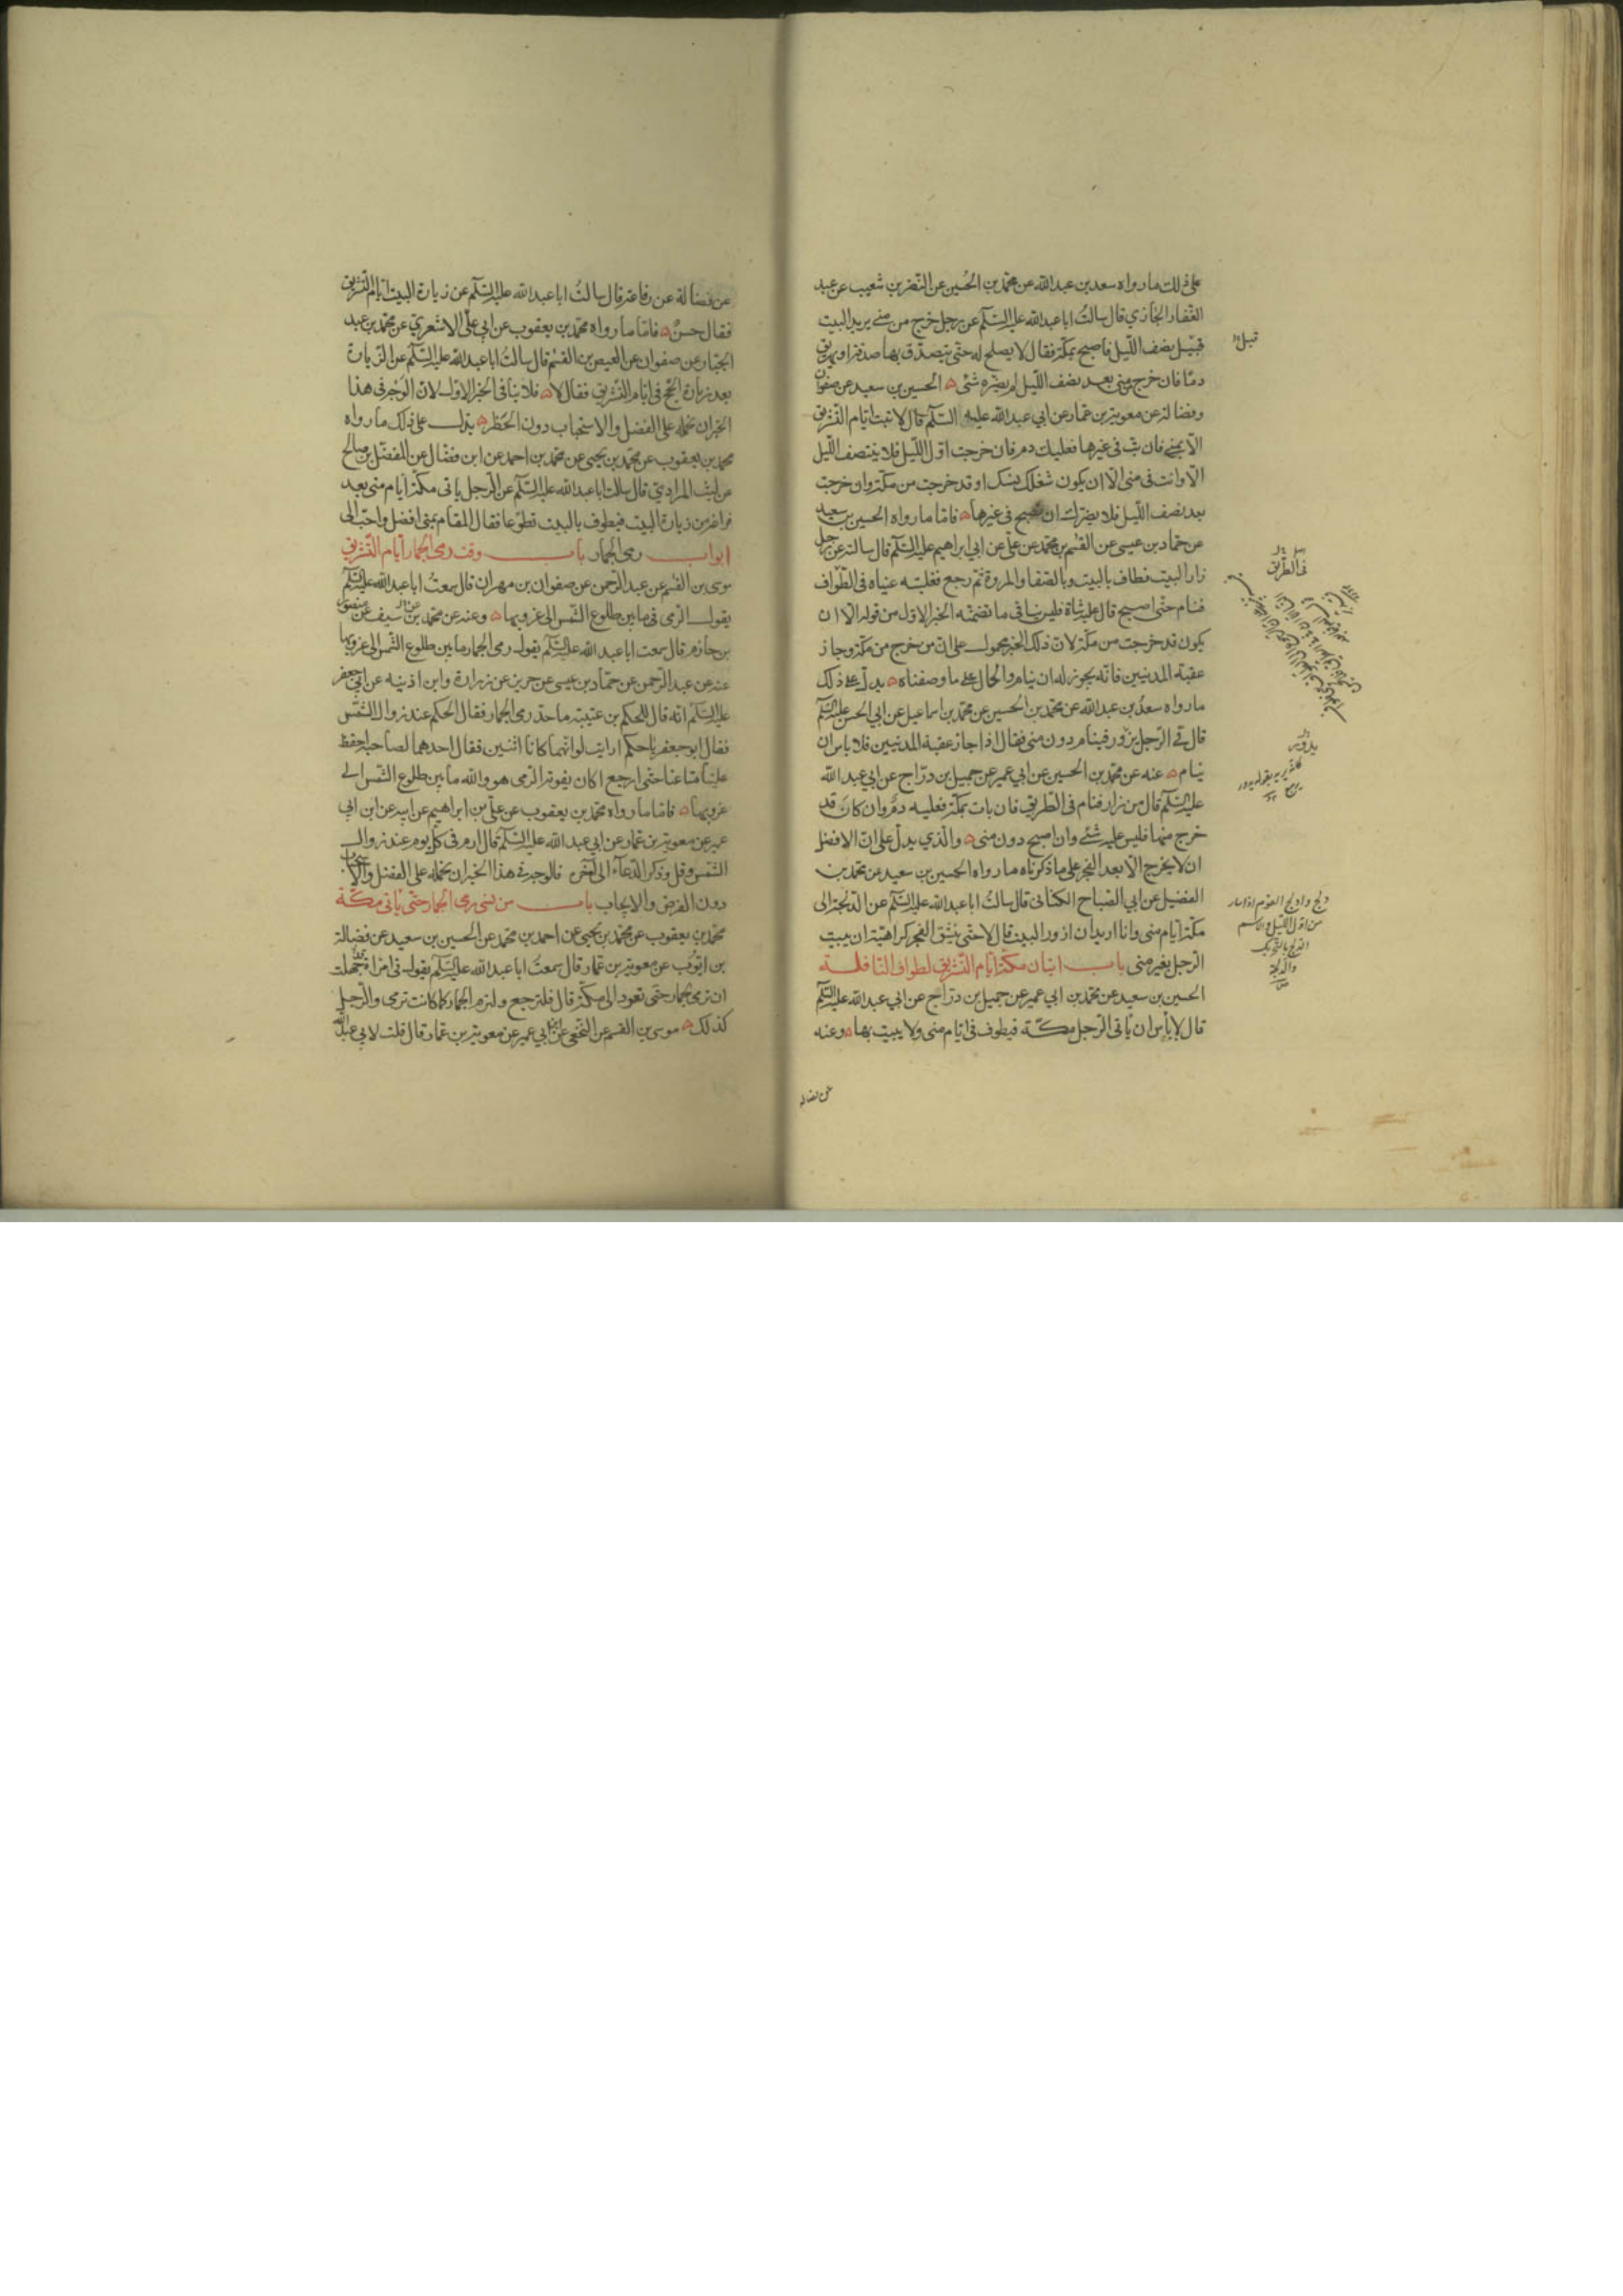 على ذلك ما رواه سعد بن عبد الله عن محمد بن الحسين عن النضر بن شعيب عن عبد
الغفار الجازي قال سالتُ ابا عبد الله عليه السّلم عن رجل خرج من منى يريد البيت
قبيل نصف اللّيل فاصبح بمكّة فقال لا يصلح له حتّى يتصدّق بها صدقة او يهريق
دمًا فان خرج من منى بعد نصف اللّيل لم يضرّه شئ الحسين بن سعيد عن صفوان
وفضالة عن معوية بن عمار عن ابي عبد الله عليه السّلم قال لا تبت ايام التّشريق
الّا بمنى فان بتّ في غيرها فعليك دم فان خرجت اوّل اللّيل فلا ينتصف اللّيل
الّا وانت في منى الّا ان يكون شغلك نسك او قد خرجت من مكّة وان خرجت
بعد نصف اللّيل فلا يضرّك ان تصبح في غيرها فامّا ما رواه الحسين بن سعيد
عن حماد بن عيسى عن القسم بن محمّد عن علي عن ابي ابراهيم عليه السّلم قال سالته عن رجل
زار البيت فطاف بالبيت وبالصّفا والمروة ثمّ رجع فغلبته عيناه في الطّواف
فنام حتّى اصبح قال عليه شاة فليس ينافى ما تضمّنه الخبر الاوّل من قوله الّا ان
يكون قد خرجت من مكّة لانّ ذلك الخبر محمول على انّ من خرج من مكّة وجاز
عقبة المدنيين فانّه يجوز له ان ينام والحال على ما وصفناه يدلّ على ذلك
ما رواه سعدُ بن عبد الله عن محمّد بن الحسين عن محمّد بن اسماعيل عن ابي الحسن عليه السّلم
قال في الرّجل يزور فينام دون منى فقال اذا جاز عقبة المدنيين فلا باس ان
ينام عنه عن محمّد بن الحسين عن ابي عمير عن جميل بن درّاج عن ابي عبد الله
عليه السّلم قال من زار فنام في الطّريق فان بات بمكّة فعليه دمٌ وان كان قد
خرج منها فليس عليه شئ وان اصبح دون منى والّذي يدلّ على انّ الافضل
ان لا يخرج الّا بعد الفجر على ما ذكرناه ما رواه الحسين بن سعيد عن محمّد بن
الفضيل عن ابي الصّباح الكناني قال سالتُ ابا عبد الله عليه السّلم عن الدّلجة الى
مكّة ايّام منى وانا اريد ان ازور البيت قال لا حتّى ينشق الفجر كراهيّة ان يبيت
الرّجل بغير منى باب اتيان مكّة ايّام التّشريق لطواف النّافلة
الحسين بن سعيد عن محمّد بن ابي عمير عن جميل بن درّاج عن ابي عبد الله عليه السّلم
قال لا بأس ان يأتي الرّجل مكّة فيطوف في ايّام منى ولا يبيت بها وعنه
قبل
في الطّريق
يزور
دلج وادلج القوم اذا سار
من اوّل اللّيل والاسم
الدلج بالتحريك
والدلجة
عن فضالة
عن فضالة عن رفاعة قال سالتُ ابا عبد الله عليه السّلم عن زيارة البيت ايّام التّشريق
فقال حسنٌ فامّا ما رواه محمّد بن يعقوب عن ابي علي الاشعري عن محمّد بن عبد
الجبّار عن صفوان عن العيص بن القسم قال سالتُ ابا عبد الله عليه السّلم عن الزّيارة
بعد زيارة الحجّ في ايّام التّشريق فقال لا فلا ينافى الخبر الاوّل لانّ الوجه في هذا
الخبر ان نحمله على الفضل والاستحباب دون الحظر يدل على ذلك ما رواه
محمد بن يعقوب عن محمّد بن يحيى عن محمّد بن احمد عن ابن فضّال عن المفضّل بن صالح
عن ليث المرادي قال سالت ابا عبد الله عليه السّلم عن الرّجل ياتى مكّة ايّام منى بعد
فراغه من زيارة البيت فيطوف بالبيت تطوّعا فقال المقام بمنى افضل واحبّ الى
ابواب رمى الجمار باب وقت رمى الجمار ايّام التّشريق
موسى بن القسم عن عبد الرّحمن عن صفوان بن مهران قال سمعتُ ابا عبد الله عليه السّلم
يقول الرّمى فى ما بين طلوع الشّمس الى غروبها وعنه عن محمّد بن سيف عن منصور
بن حازم قال سمعت ابا عبد الله عليه السّلم يقول رمى الجمار ما بين طلوع الشّمس الى غروبها
عنه عن عبد الرّحمن عن حمّاد بن عيسى عن حريز عن زرارة وابن اذينه عن ابي جعفر
عليه السّلم انّه قال للحكم بن عتيبة ما حدّ رمى الجمار فقال الحكم عند زوال الشّمس
فقال ابو جعفر يا حكم ارايت لو انّهما كانا اثنين فقال احدهما لصاحبه احفظ
علينا متاعنا حتّى ارجع اكان يفوته الرّمى هو والله ما بين طلوع الشّمس الى
غروبها فامّا ما رواه محمّد بن يعقوب عن علي بن ابراهيم عن ابيه عن ابن ابي
عمير عن معوية بن عمّار عن ابي عبد الله عليه السّلم قال ارم في كلّ يوم عند زوال
الشّمس وقل وذكر الدّعاء الى آخره فالوجه في هذا الخبر ان نحمله على الفضل والاستحباب
دون الفرض والايجاب باب من نسى رمى الجمار حتّى يأتى مكّة
محمّد بن يعقوب عن محمّد بن يحيى عن احمد بن محمّد عن الحسين بن سعيد عن فضالة
بن ايّوب عن معوية بن عمّار قال سمعتُ ابا عبد الله عليه السّلم يقول في امراة جهلت
ان ترمى الجمار حتّى تعود الى مكّة قال فلترجع ولترم الجمار كما كانت ترمى والرّجل
كذلك موسى بن القسم عن النّخعى عن ابن ابي عمير عن معوية بن عمّار قال قلت لابي عبد الله